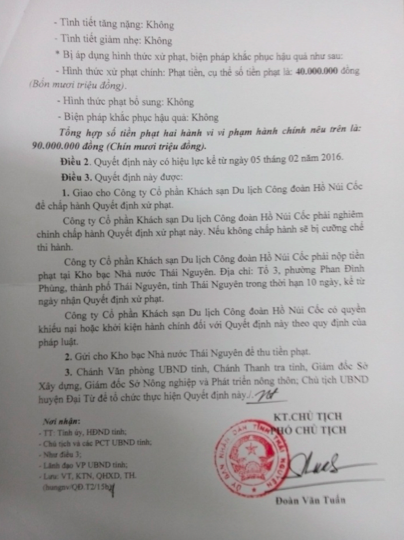 - Tình tiết tăng nặng: Không
- Tình tiết giảm nhẹ: Không
* Bị áp dụng hình thức xử phạt, biện pháp khắc phục hậu quả như sau:
- Hình thức xử phạt chính: Phạt tiền, cụ thể số tiền phạt là: 40.000.000 đồng
(Bốn mươi triệu đồng).
- Hình thức phạt bổ sung: Không
- Biện pháp khắc phục hậu quả: Không
Tổng hợp số tiền phạt hai hành vi vi phạm hành chính nêu trên là:
90.000.000 đồng (Chín mươi triệu đồng).
Điều 2. Quyết định này có hiệu lực kể từ ngày 05 tháng 02 năm 2016.
Điều 3. Quyết định này được:
1. Giao cho Công ty Cổ phần Khách sạn Du lịch Công đoàn Hồ Núi Cốc
để chấp hành Quyết định xử phạt.
Công ty Cổ phần Khách sạn Du lịch Công đoàn Hồ Núi Cốc phải nghiêm
chỉnh chấp hành Quyết định xử phạt này. Nếu không chấp hành sẽ bị cưỡng chế
thi hành.
Công ty Cổ phần Khách sạn Du lịch Công đoàn Hồ Núi Cốc phải nộp tiền
phạt tại Kho bạc Nhà nước Thái Nguyên. Địa chỉ: Tổ 3, phường Phan Đình
Phùng, thành phố Thái Nguyên, tỉnh Thái Nguyên trong thời hạn 10 ngày, kể từ
ngày nhận Quyết định xử phạt.
Công ty Cổ phần Khách sạn Du lịch Công đoàn Hồ Núi Cốc có quyền
khiếu nại hoặc khởi kiện hành chính đối với Quyết định này theo quy định của
pháp luật.
2. Gửi cho Kho bạc Nhà nước Thái Nguyên để thu tiền phạt.
3. Chánh Văn phòng UBND tỉnh, Chánh Thanh tra tỉnh, Giám đốc Sở
Xây dựng, Giám đốc Sở Nông nghiệp và Phát triển nông thôn; Chủ tịch UBND
huyện Đại Từ để tổ chức thực hiện Quyết định này./.
Nơi nhận:
- TT: Tỉnh ủy, HĐND tỉnh;
- Chủ tịch và các PCT UBND tỉnh;
- Như điều 3;
- Lãnh đạo VP UBND tỉnh;
- Lưu: VT, KTN, QHXD, TH.
KT.CHỦ TỊCH
PHÓ CHỦ TỊCH
Đoàn Văn Tuấn